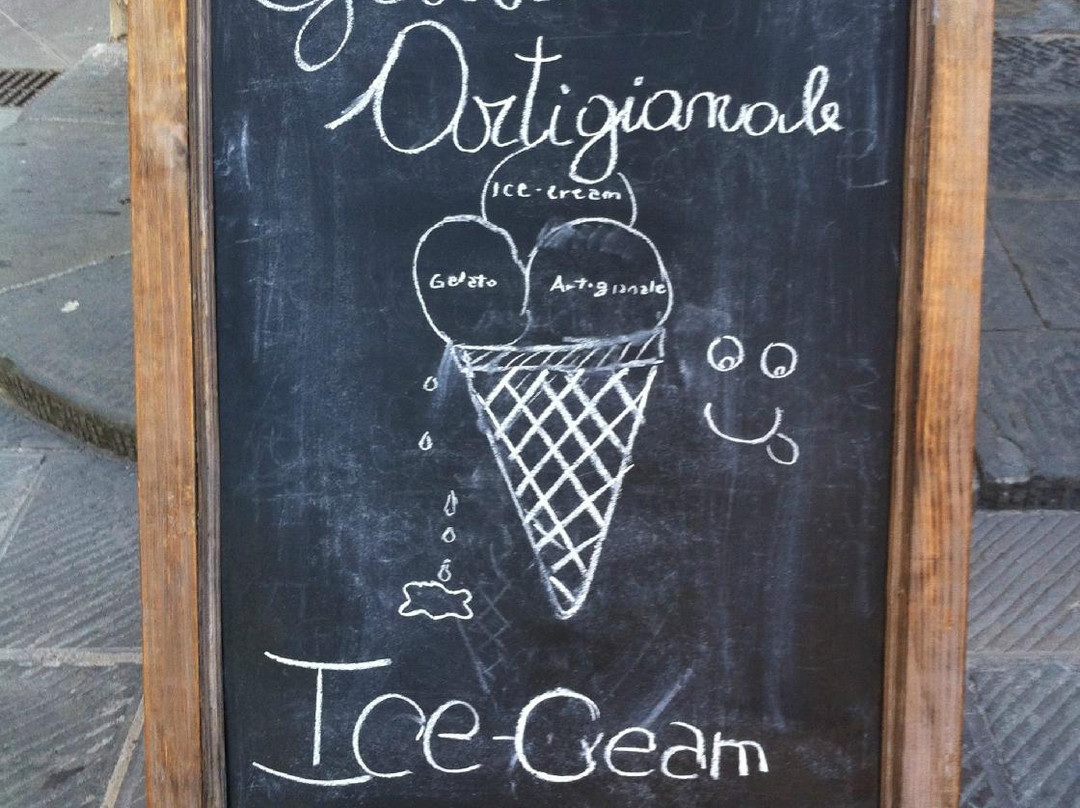 Gelato
Artigianale
Ice-cream
Gelato
Artigianale
Ice-Cream